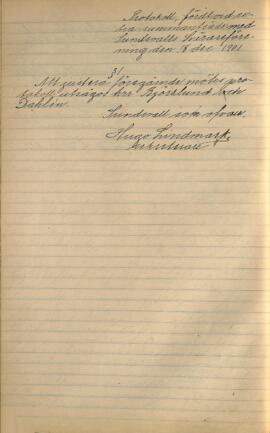 Protokoll, fördt vid ex-
tra sammanträde med
Sundsvalls Skridskoföre-
ning den 18 dec. 1901.
§ 1
Att justera föregående mötes pro-
tokoll utsågos hrr Björklund och
Dahlin.
Sundsvall som ofvan.
Hugo Lindmark,
sekreterare